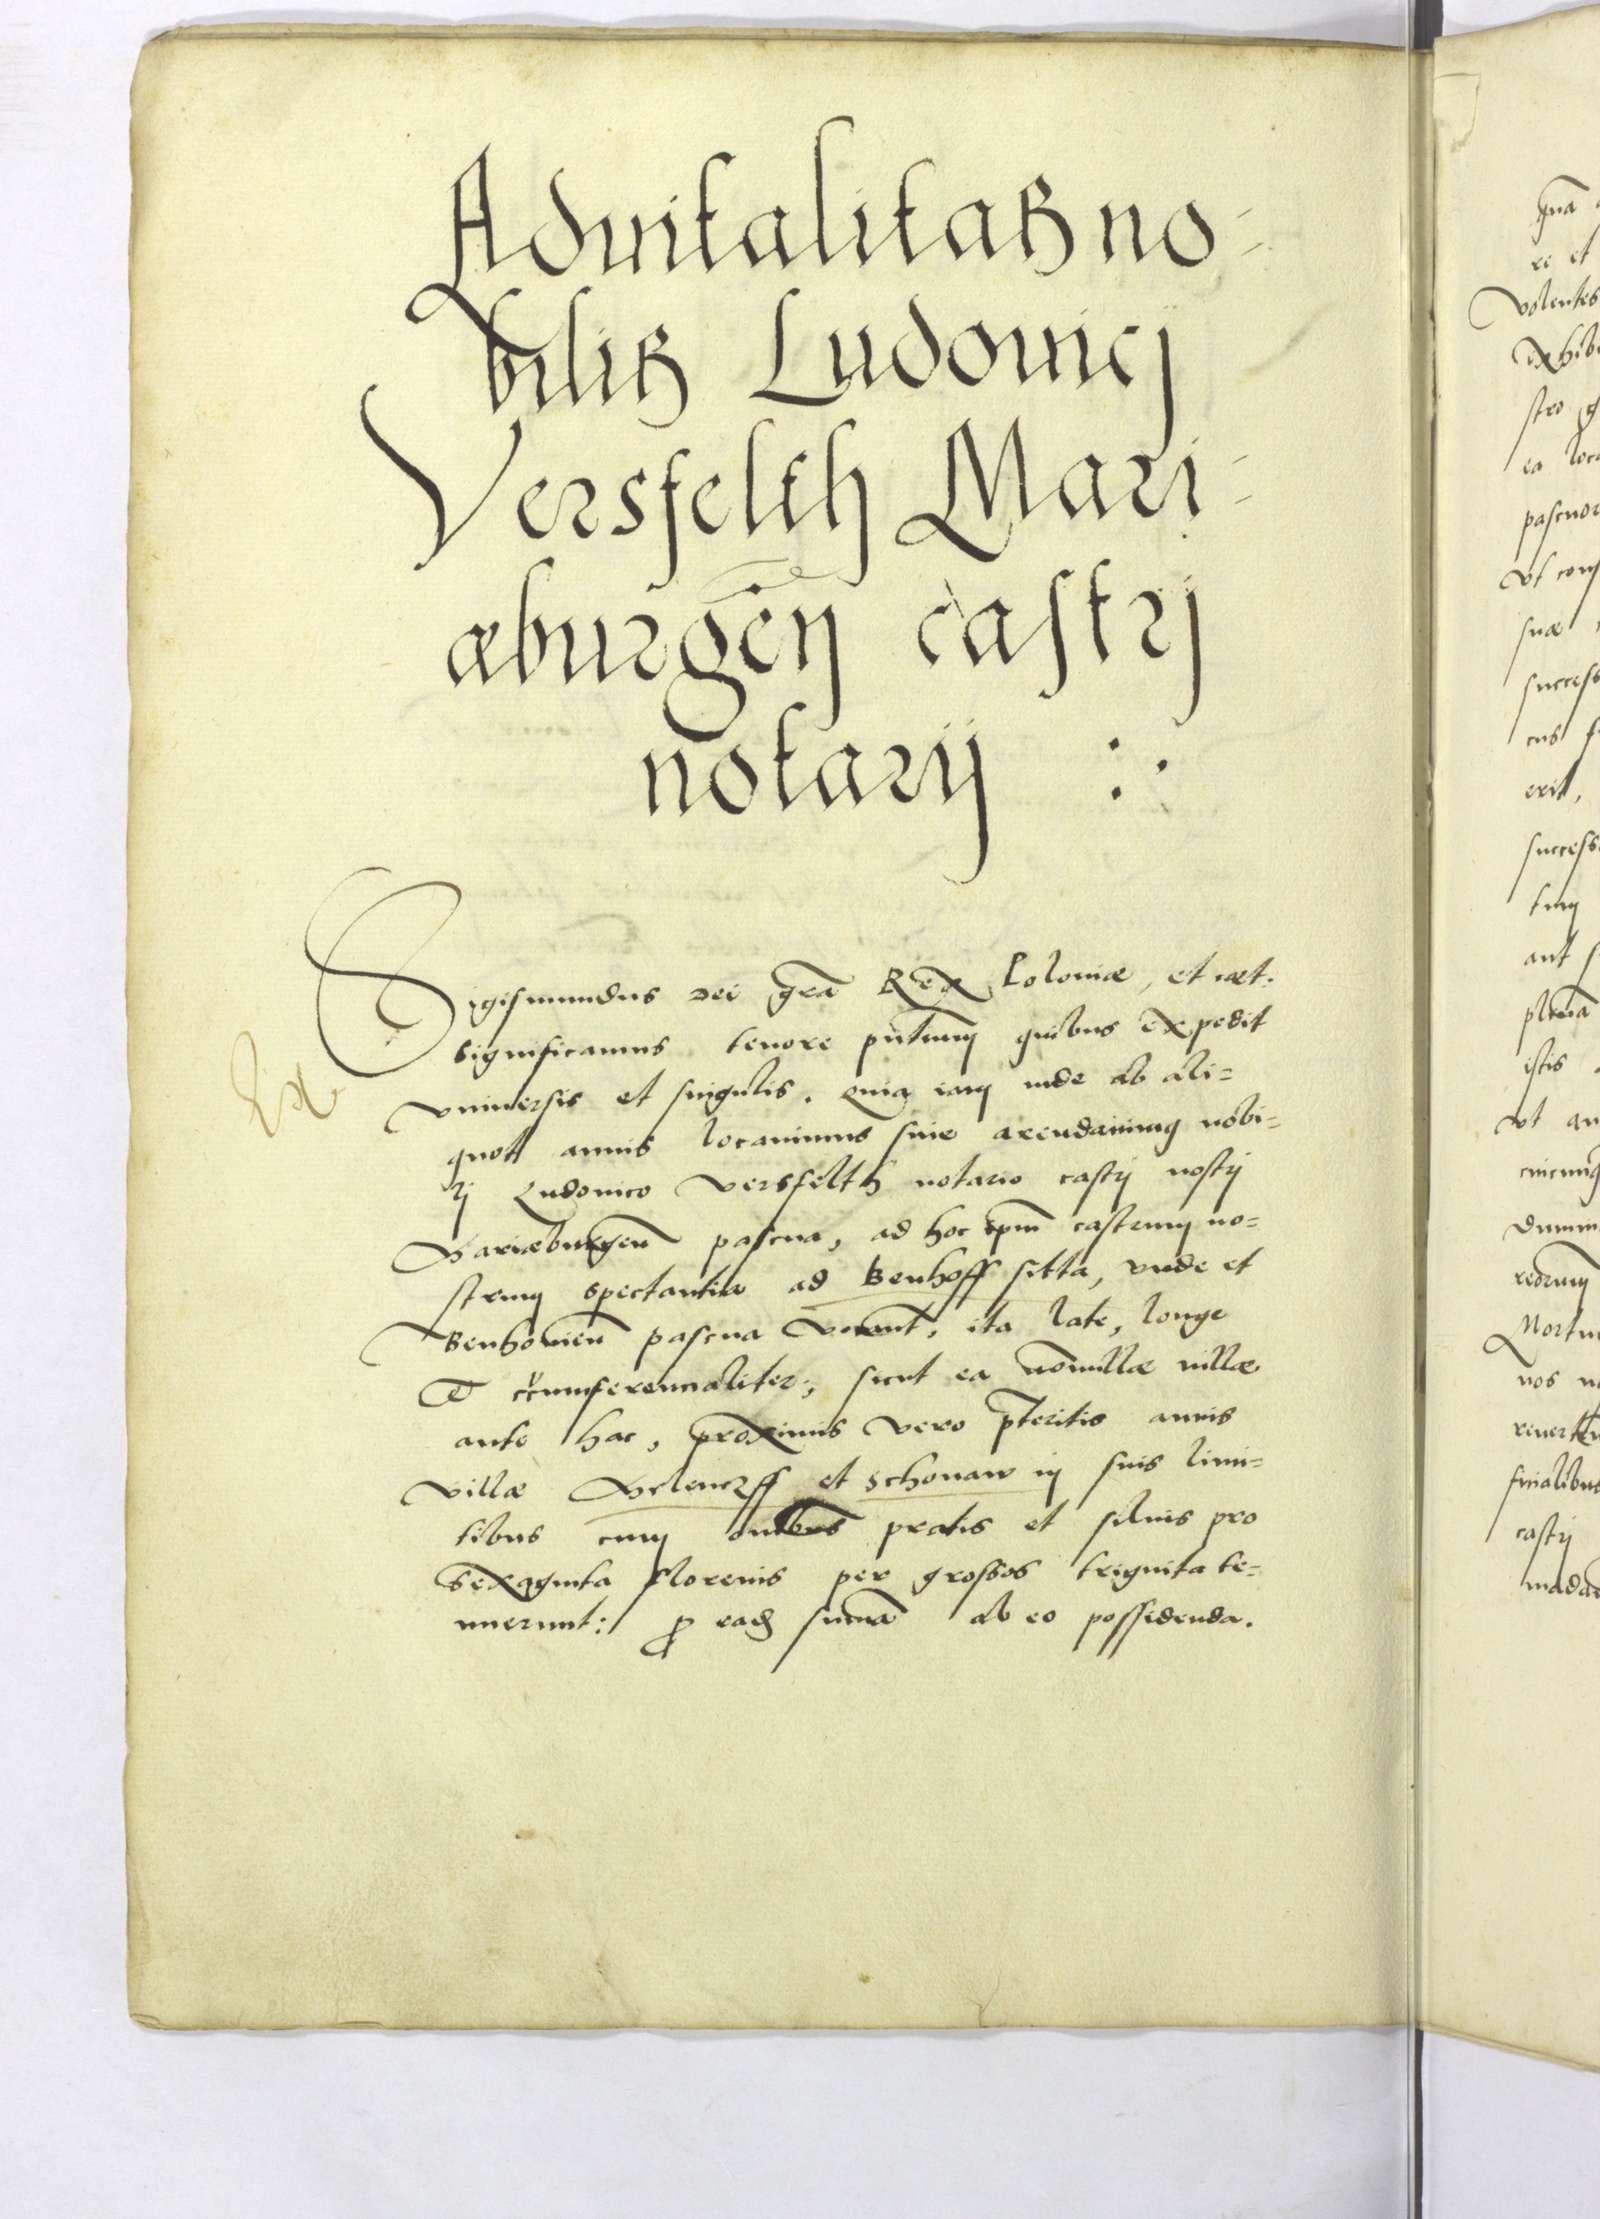 Aduitalitas no-
bilis Ludouicj
Versfelth Mari-
æburgen̄ castrj
notarij :.
Sigismundus Dei gr̄a Rex Poloniæ, et cæt:
significamus tenore pn̄tium quibus expedit
vniuersis et singulis. Quia iam inde ab ali=
quot annis locauimus siue arendauimus nobi=
lj Ludouico Versfelth notario castrj nostrj
Mariæburgen̄ pascua, ad hoc ipm̄ castrum no=
strum spectantia ad Benhoff sitta, vnde et
Benhouien̄ pascua vocant̄, ita late, longe
Et circumferencialiter, sicut ea nōnullæ uillæ
ante hac, proximis vero p̄teritis annis
villæ et Schonaw in suis limi=
tibus cum om̄ibus pratis et siluis pro
Sexaginta florenis per grossos triginta te=
nuerunt: p eadē sum̄a ab eo possidenda.
qua
re et
volentes
Exhib
stro
ea loc
pascuor
vt con
suæ
success
cus
erit,
success
tum
aut
plenā
istis
vt
cuicumq
dumm
redorum
Mortu
nos
reuert
finalibus
castrj